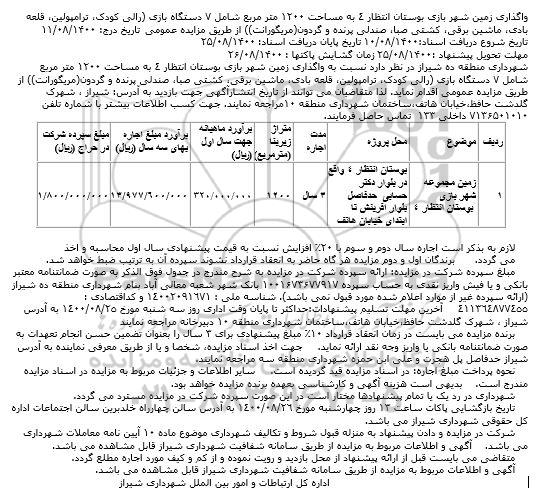 واگذاری زمین شهر بازی بوستان انتظار ٤ به مساحت ۱۲۰۰ متر مربع شامل ۷ دستگاه بازی (رالی کودک، ترامپولین، قلعه
بادی، ماشین برقی، کشتی صبا، صندلی پرنده و گردون(مریگورانت)) از طریق مزایده عمومی تاریخ درج: ۱۱/۰۸/۱۴۰۰
تاریخ شروع دریافت اسناد: ۱۰/۰۸/۱۴۰۰ تاریخ پایان دریافت اسناد: ۲۵/۰۸/۱۴۰۰
مهلت تحویل پیشنهاد: ۲۵/۰۸/۱۴۰۰ زمان گشایش پاکتها: ۲۶/۰۸/۱۴۰۰
شهرداری منطقه ده شیراز در نظر دارد نسبت به واگذاری زمین شهر بازی بوستان انتظار ٤ به مساحت ۱۲۰۰ متر مربع
شامل ۷ دستگاه بازی (رالی کودک، ترامپولین، قلعه بادی، ماشین برقی، کشتی صبا، صندلی پرنده و گردون(مریگورانت)) از
طریق مزایده عمومی اقدام نماید. لذا متقاضیان می توانند از تاریخ انتشارآگهی جهت بازدید به آدرس: شیراز ، شهرک
گلدشت حافظ،خیابان هاتف،ساختمان شهرداری منطقه ۱۰مراجعه نمایند، جهت کسب اطلاعات بیشتر با شماره تلفن
۷۱۳۶۵۰۱۰۱۰ داخلی ۱۳۳ تماس حاصل فرمایند.
ردیف موضوع محل پروژه مدت اجاره متراژ زیربنا (مترمربع) برآورد ماهیانه جهت سال اول (ریال) برآورد مبلغ اجاره بهای سه سال (ریال) مبلغ سپرده شرکت در حراج (ریال)
۱ زمین مجموعه شهر بازی بوستان انتظار ٤ بوستان انتظار ٤ واقع در بلوار دکتر حسابی حدفاصل بلوار آفرینش تا ابتدای خیابان هاتف ۳ سال ۱۲۰۰ ۳۲۰/۰۰۰/۰۰۰ ۱۳/۹۷۷/۶۰۰/۰۰۰ ۱/۸۰۰/۰۰۰/۰۰۰
لازم به بذکر است اجاره سال دوم و سوم با ۲۰٪ افزایش نسبت به قیمت پیشنهادی سال اول محاسبه و اخذ
می گردد. برندگان اول و دوم مزایده هر گاه حاضر به انعقاد قرارداد نشوند سپرده آن به ترتیب ضبط خواهد شد.
مبلغ سپرده شرکت در مزایده: ارائه سپرده شرکت در مزایده به شرح مندرج در جدول فوق الذکر و صورت ضمانتنامه معتبر
بانکی و یا فیش واریز نقدی به حساب سپرده ۱۰۰۱۶۷۳۶۷۷۹۱۷ بانک شهر شعبه معالی آباد بنام شهرداری منطقه ده شیراز
(ارائه سپرده غیر از موارد اعلام شده مورد قبول نمی باشد)، شناسه ملی : ۱۴۰۰۲۰۹۱۶۷۱ و کداقتصادی :
۴۱۱۳۶۴۸۷۷۴۵۵ آخرین مهلت تسلیم پیشنهادات:حداکثر تا پایان وقت اداری روز سه شنبه مورخ ۱۴۰۰/۰۸/۲۵ به آدرس
شیراز ، شهرک گلدشت حافظ،خیابان هاتف،ساختمان شهرداری منطقه ۱۰ دبیرخانه مراجعه نمایند
برنده مزایده می بایست در زمان انعقاد قرارداد ۱۰٪ مبلغ پیشنهادی برای ۳ سال را بعنوان تضمین حسن انجام تعهدات به
صورت ضمانتنامه بانکی یا واریز وجه نقد ارائه نماید. جهت اخذ اسناد مزایده، شخصا و یا از طریق معرفی نماینده به آدرس
شیراز حدفاصل پل هجرت و علی ابن حمزه شهرداری منطقه سه مراجعه نمایند.
نحوه پرداخت مبلغ اجاره: در اسناد مزایده قید گردیده است. سایر اطلاعات و جزئیات مربوط به مزایده در اسناد مزایده
مندرج است. بدیهی است هزینه آگهی و کارشناسی بعهده برنده مزایده خواهد بود.
شهرداری در رد یک یا تمام پیشنهادها مختار است در این صورت سپرده شرکت در مزایده مسترد می گردد.
تاریخ بازگشایی پاکات ساعت ۱۳ روز چهارشنبه مورخ ۱۴۰۰/۰۸/۲۶ به آدرس سالن چهارراه خلدبرین سالن اجتماعات اداره
کل حقوقی شهرداری شیراز می باشد.
شرکت در مزایده و دادن پیشنهاد به منزله قبول شروط و تکالیف شهرداری موضوع ماده ۱۰ آیین نامه معاملات شهرداری
می باشد. آگهی و اطلاعات مربوط به مزایده از طریق سامانه شفافیت شهرداری شیراز قابل مشاهده می باشد.
متقاضی می بایست قبل از ارائه پیشنهاد از محل بازدید و رویت نموده و از کم و کیف مورد اجاره مطلع گردد.
آگهی و اطلاعات مربوط به مزایده از طریق سامانه شفافیت شهرداری شیراز قابل مشاهده می باشد.
اداره کل ارتباطات و امور بین الملل شهرداری شیراز